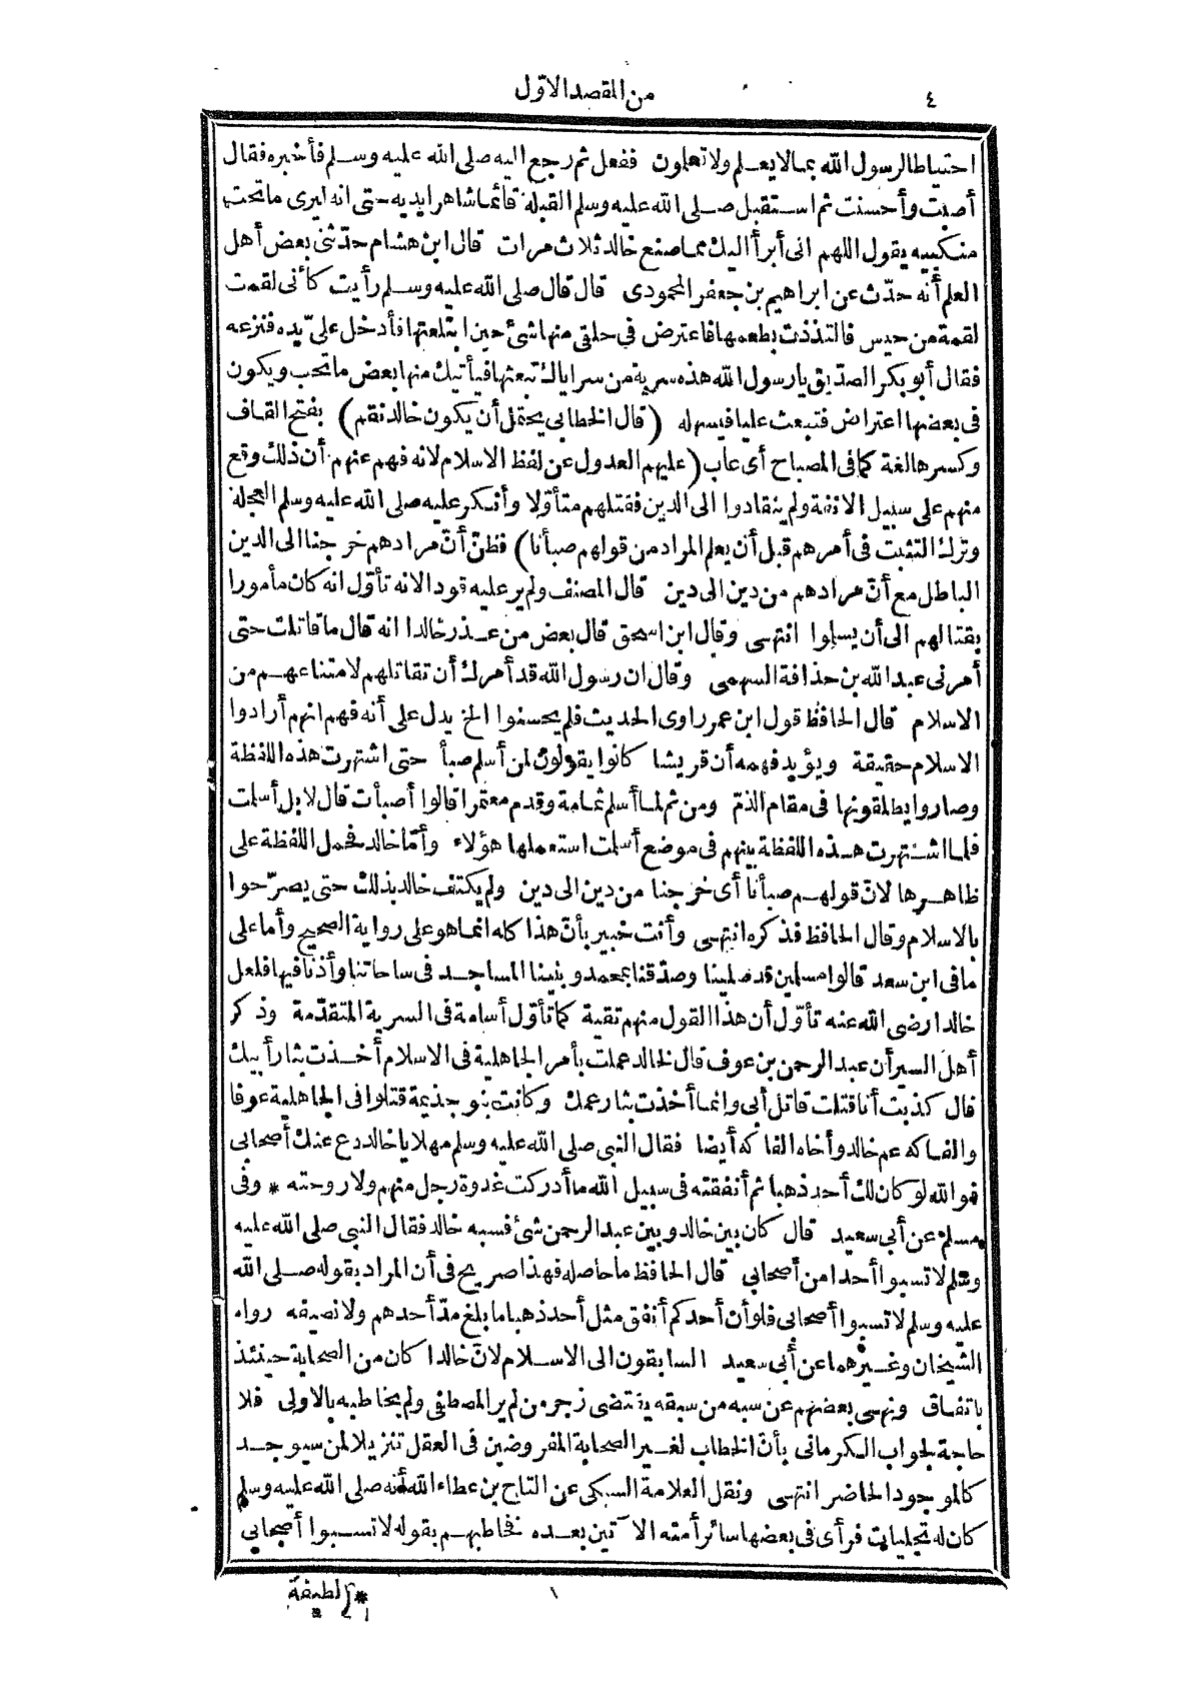 ٤ من المقصد الاوّل
احتياطا لرسول الله بما لا يعلم ولا تعلمون ففعل ثم رجع اليه صلى الله عليه وسلم فأخبره فقال
أصبت وأحسنت ثم استقبل صلى الله عليه وسلم القبلة قائما شاهرا يديه حتى انه ليرى ما تحت
منكبيه يقول اللهم انى أبرأ اليك مما صنع خالد ثلاث مرات قال ابن هشام حدّثنى بعض أهل
العلم أنه حدّث عن ابراهيم بن جعفر المحمودى قال قال صلى الله عليه وسلم رأيت كأنى لقمت
لقمة من حيس فالتذذت بطعمها فاعترض فى حلقى منها شئ حين ابتلعتها فأدخل علىّ يده فنزعه
فقال أبو بكر الصدّيق يا رسول الله هذه سرية من سراياك تبعثها فيأتيك منها بعض ما تحب ويكون
فى بعضها اعتراض فتبعث عليا فيسهله (قال الخطابى يحتمل أن يكون خالد نقم) بفتح القاف
وكسرها لغة كما فى المصباح أى عاب (عليهم العدول عن لفظ الاسلام لانه فهم عنهم أن ذلك وقع
منهم على سبيل الانفة ولم ينقادوا الى الدين فقتلهم متأوّلا وأنكر عليه صلى الله عليه وسلم العجلة
وترك التثبت فى أمرهم قبل أن يعلم المراد من قولهم صبأنا) فظنّ أنّ مرادهم خرجنا الى الدين
الباطل مع أنّ مرادهم من دين الى دين قال المصنف ولم ير عليه قودا لانه تأوّل انه كان مأمورا
بقتالهم الى أن يسلموا انتهى وقال ابن اسحق قال بعض من عذر خالدا انه قال ما قاتلت حتى
أمرنى عبد الله بن حذافة السهمى وقال ان رسول الله قد أمرك أن تقاتلهم لامتناعهم من
الاسلام قال الحافظ قول ابن عمر راوى الحديث فلم يحسنوا الخ يدل على أنه فهم انهم أرادوا
الاسلام حقيقة ويؤيد فهمه أن قريشا كانوا يقولون لمن أسلم صبأ حتى اشتهرت هذه اللفظة
وصاروا يطلقونها فى مقام الذمّ ومن ثم لما أسلم ثمامة وقدم معتمرا قالوا أصبأت قال لا بل أسلمت
فلما اشتهرت هذه اللفظة بينهم فى موضع أسلمت استعملها هؤلاء وأمّا خالد فحمل اللفظة على
ظاهرها لانّ قولهم صبأنا أى خرجنا من دين الى دين ولم يكتف خالد بذلك حتى يصرّحوا
بالاسلام وقال الحافظ فذكره انتهى وأنت خبير بأنّ هذا كله انما هو على رواية الصحيح وأما على
ما فى ابن سعد قالوا مسلمين قد صلينا وصدّقنا بمحمد وبنينا المساجد فى ساحاتنا وأذنا فيها فلعل
خالدا رضى الله عنه تأوّل أن هذا القول منهم تقية كما تأوّل أسامة فى السرية المتقدّمة وذكر
أهل السير أن عبد الرحمن بن عوف قال لخالد عملت بأمر الجاهلية فى الاسلام أخذت بثار أبيك
قال كذبت أنا قتلت قاتل أبى وانما أخذت بثار عمك وكانت بنو جذيمة قتلوا فى الجاهلية عوفا
والفاكه عم خالد وأخاه الفاكه أيضا فقال النبى صلى الله عليه وسلم مهلا يا خالد دع عنك أصحابى
فوالله لو كان لك أحد ذهبا ثم أنفقته فى سبيل الله ما أدركت غدوة رجل منهم ولا روحته * وفى
مسلم عن أبى سعيد قال كان بين خالد وبين عبد الرحمن شئ فسبه خالد فقال النبى صلى الله عليه
وسلم لا تسبوا أحدا من أصحابى قال الحافظ ما حاصله فهذا صريح فى أن المراد بقوله صلى الله
عليه وسلم لا تسبوا أصحابى فلو أن أحدكم أنفق مثل أحد ذهبا ما بلغ مدّ أحدهم ولا نصيفه رواه
الشيخان وغيرهما عن أبى سعيد السابقون الى الاسلام لانّ خالدا كان من الصحابة حينئذ
باتفاق ونهى بعضهم عن سبه من سبقه يقتضى زجر من لم ير المصطفى ولم يخاطبه بالاولى فلا
حاجة لجواب الكرمانى بأنّ الخطاب لغير الصحابة المفروضين فى العقل تنزيلا لمن سيوجد
كالموجود الحاضر انتهى ونقل العلامة السبكى عن التاج بن عطاء الله أنه صلى الله عليه وسلم
كان له تجليات فرأى فى بعضها سائر أمته الآتين بعده فخاطبهم بقوله لا تسبوا أصحابى